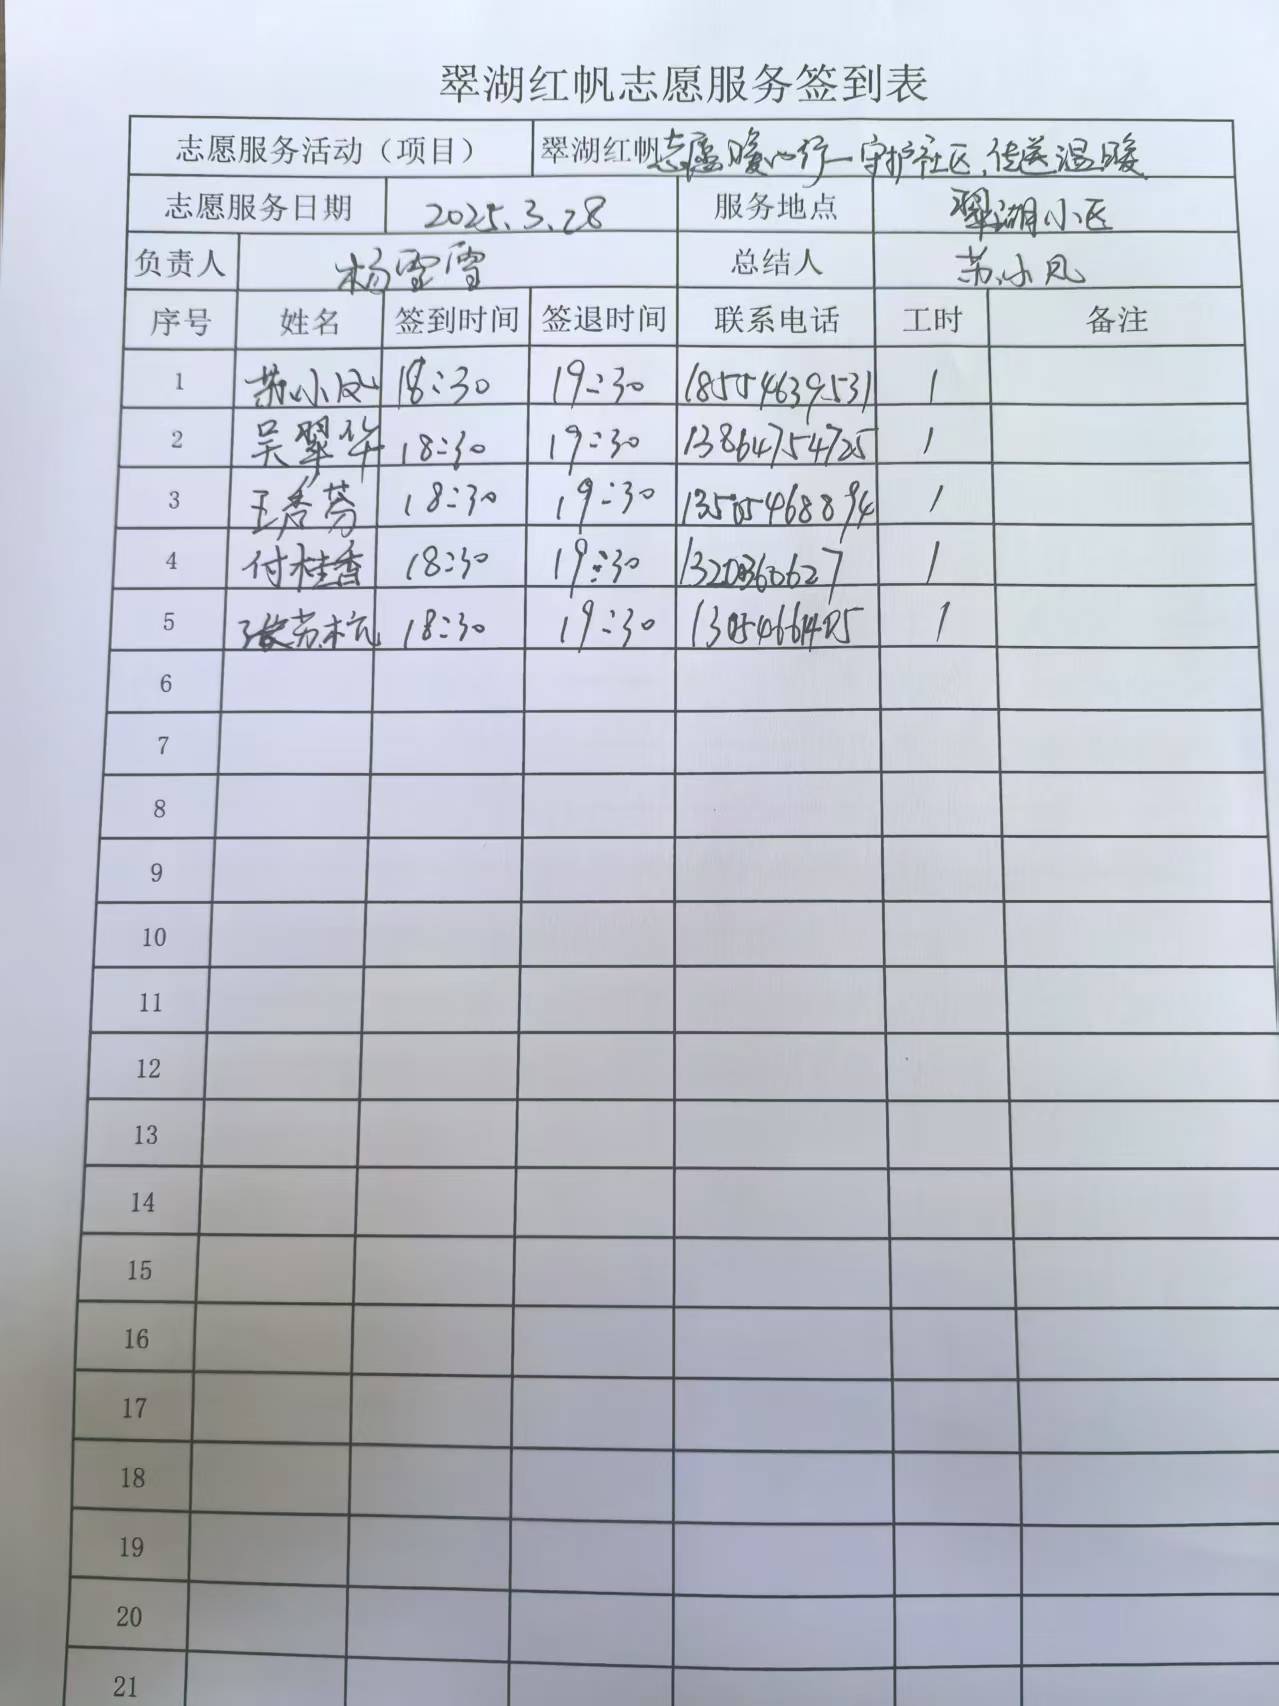 翠湖红帆志愿服务签到表
志愿服务活动（项目） 翠湖红帆志愿暖心行—守护社区,传送温暖
志愿服务日期 2025.3.28 服务地点 翠湖小区
负责人 杨雪雪 总结人 苏小凤
序号 姓名 签到时间 签退时间 联系电话 工时 备注
1 苏小凤 18:30 19:30 18554639531 1
2 吴翠华 18:30 19:30 13864754725 1
3 王秀芬 18:30 19:30 13505468894 1
4 付桂香 18:30 19:30 1
5 张苏杭 18:30 19:30 1
6
7
8
9
10
11
12
13
14
15
16
17
18
19
20
21